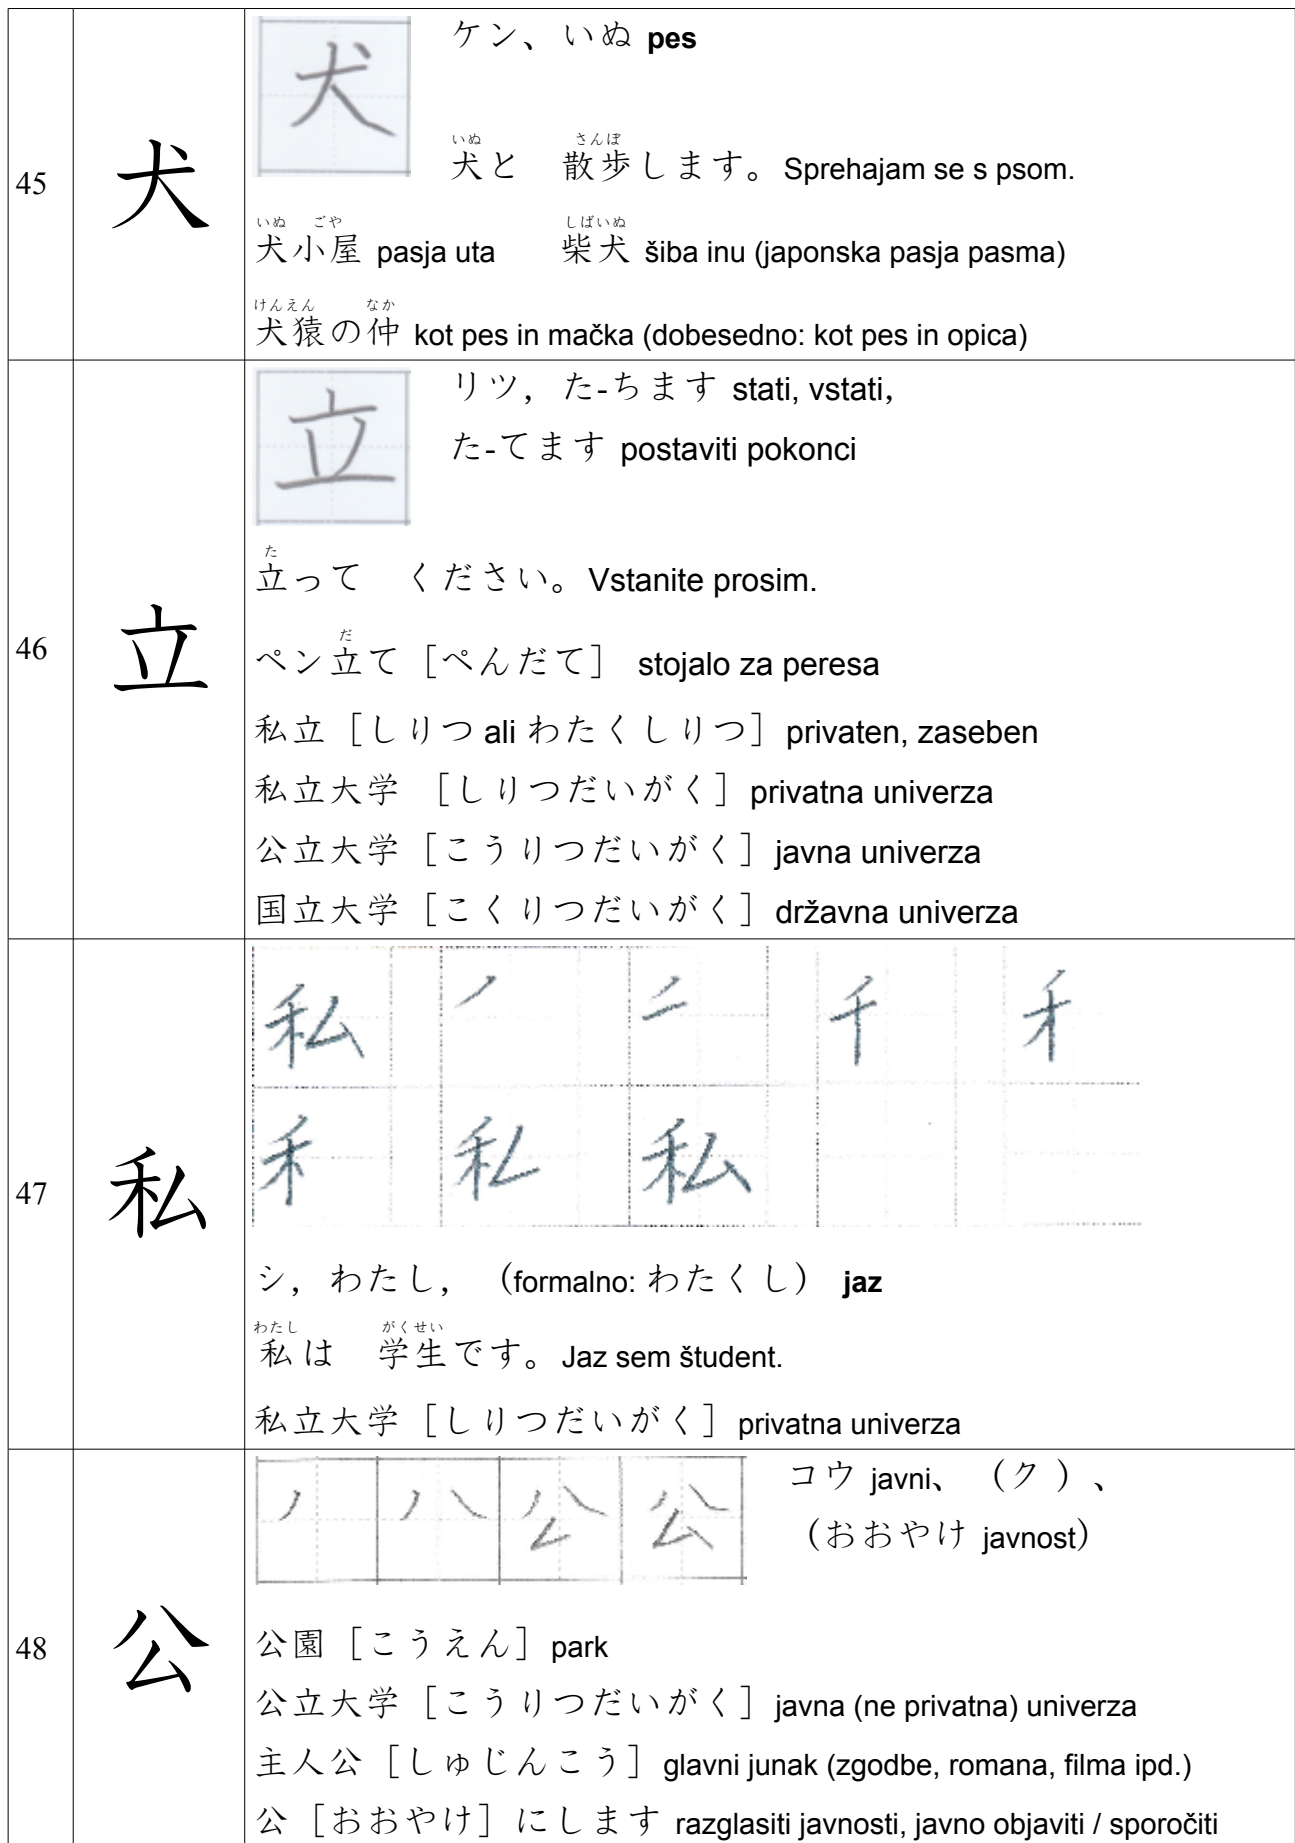 45
犬
犬
ケン、いぬ pes
いぬ さんぽ
犬と　散歩します。Sprehajam se s psom.
いぬ ごや しばいぬ
犬小屋 pasja uta 柴犬 šiba inu (japonska pasja pasma)
けんえん なか
犬猿の仲 kot pes in mačka (dobesedno: kot pes in opica)
46
立
立
リツ, た-ちます stati, vstati,
た-てます postaviti pokonci
た
立って　ください。Vstanite prosim.
だ
ペン立て［ぺんだて］ stojalo za peresa
私立［しりつ ali わたくしりつ］privaten, zaseben
私立大学 ［しりつだいがく］privatna univerza
公立大学［こうりつだいがく］javna univerza
国立大学［こくりつだいがく］državna univerza
47
私
私 ノ 二 千 才
禾 私 私
シ, わたし, （formalno: わたくし） jaz
わたし がくせい
私は　学生です。Jaz sem študent.
私立大学［しりつだいがく］privatna univerza
48
公
ノ 八 公 公
コウ javni、（ク）、
（おおやけ javnost）
公園［こうえん］park
公立大学［こうりつだいがく］javna (ne privatna) univerza
主人公［しゅじんこう］glavni junak (zgodbe, romana, filma ipd.)
公［おおやけ］にします razglasiti javnosti, javno objaviti / sporočiti